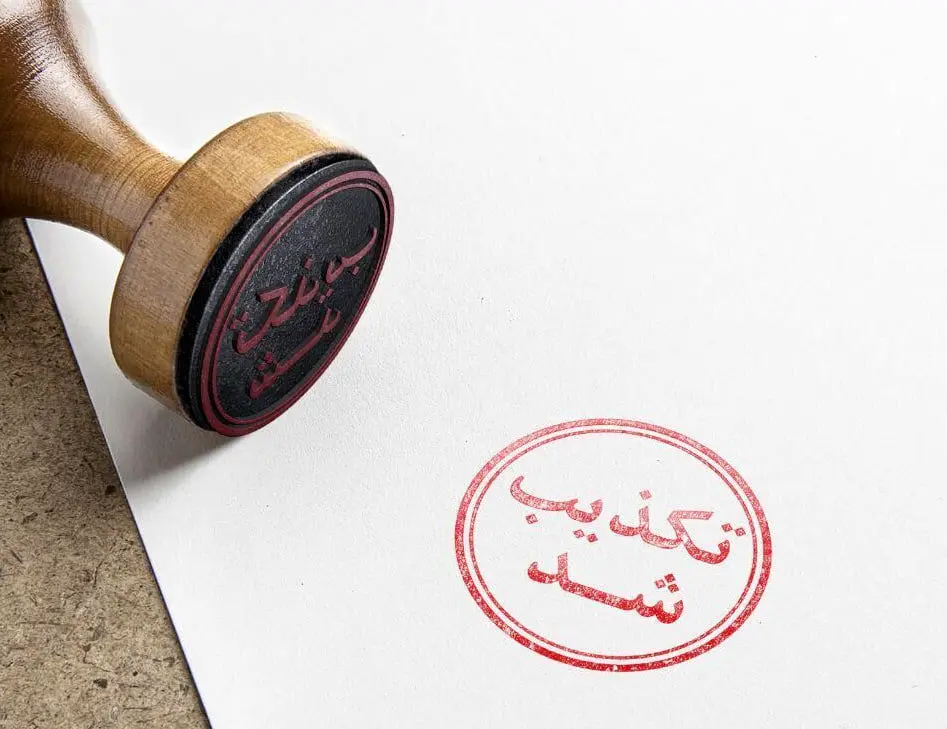 تکذیب
شد